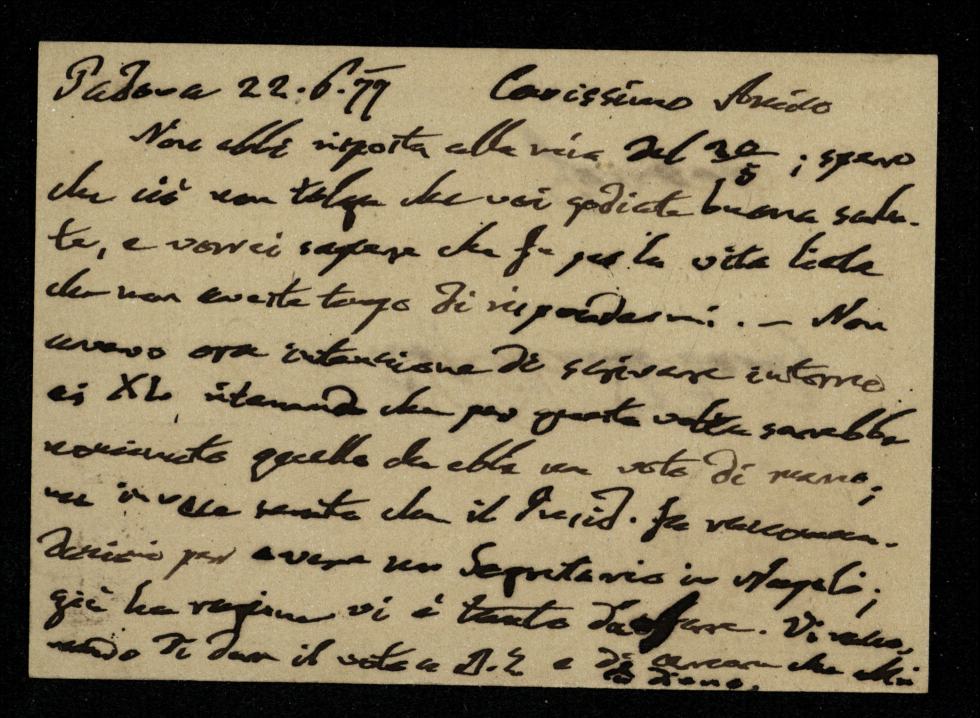 Padova 22.6.77 Carissimo Amico
Non ebbi risposta alla mia del 30/5; spero
che ciò non tolga che voi godiate buona salu-
te, e vorrei sapere che fa per la vita
che non aveste tempo di rispondermi. — Non
avevo ora intenzione di scrivere intorno
ai XL, ritenendo che per questa volta sarebbe
nominato quello che ebbe un voto di meno;
ma invece sento che il Presid. fa raccoman-
dazioni per avere un Segretario in Napoli;
già ha ragione vi è tanto da fare. Vi racco-
mando di dare il voto a B. e di cercare che altri
lo diano.